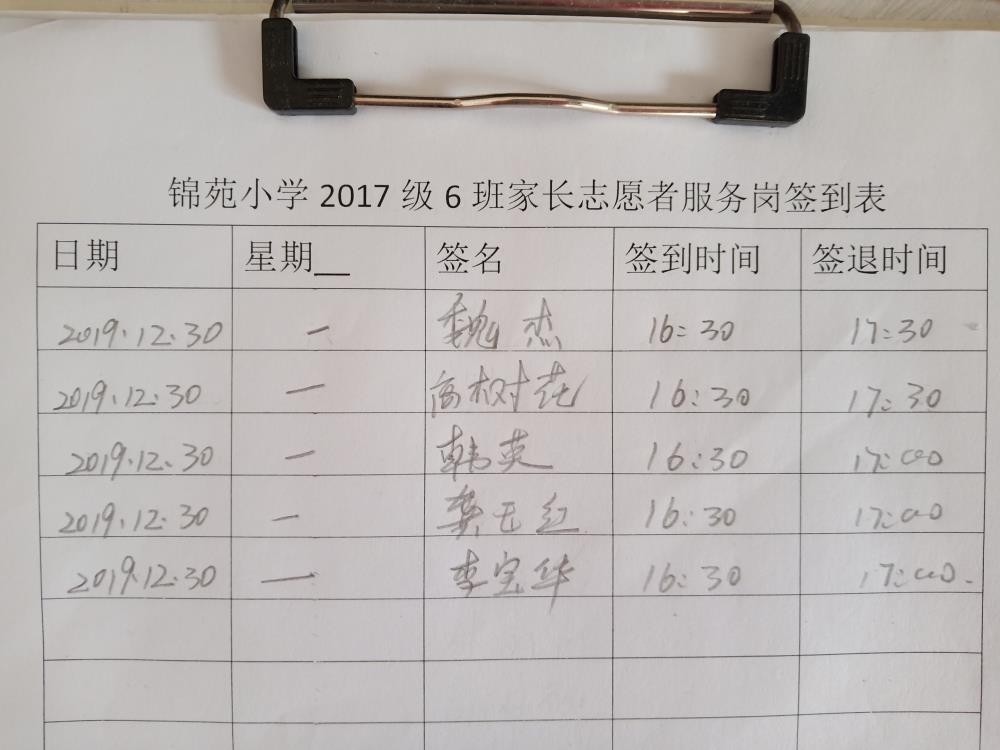 锦苑小学 2017 级 6 班家长志愿者服务岗签到表
日期 星期__ 签名 签到时间 签退时间
2019.12.30 一 魏杰 16:30 17:30
2019.12.30 一 高树花 16:30 17:30
2019.12.30 一 韩英 16:30 17:00
2019.12.30 一 红 16:30 17:00
2019.12.30 一 李宝华 16:30 17:00.